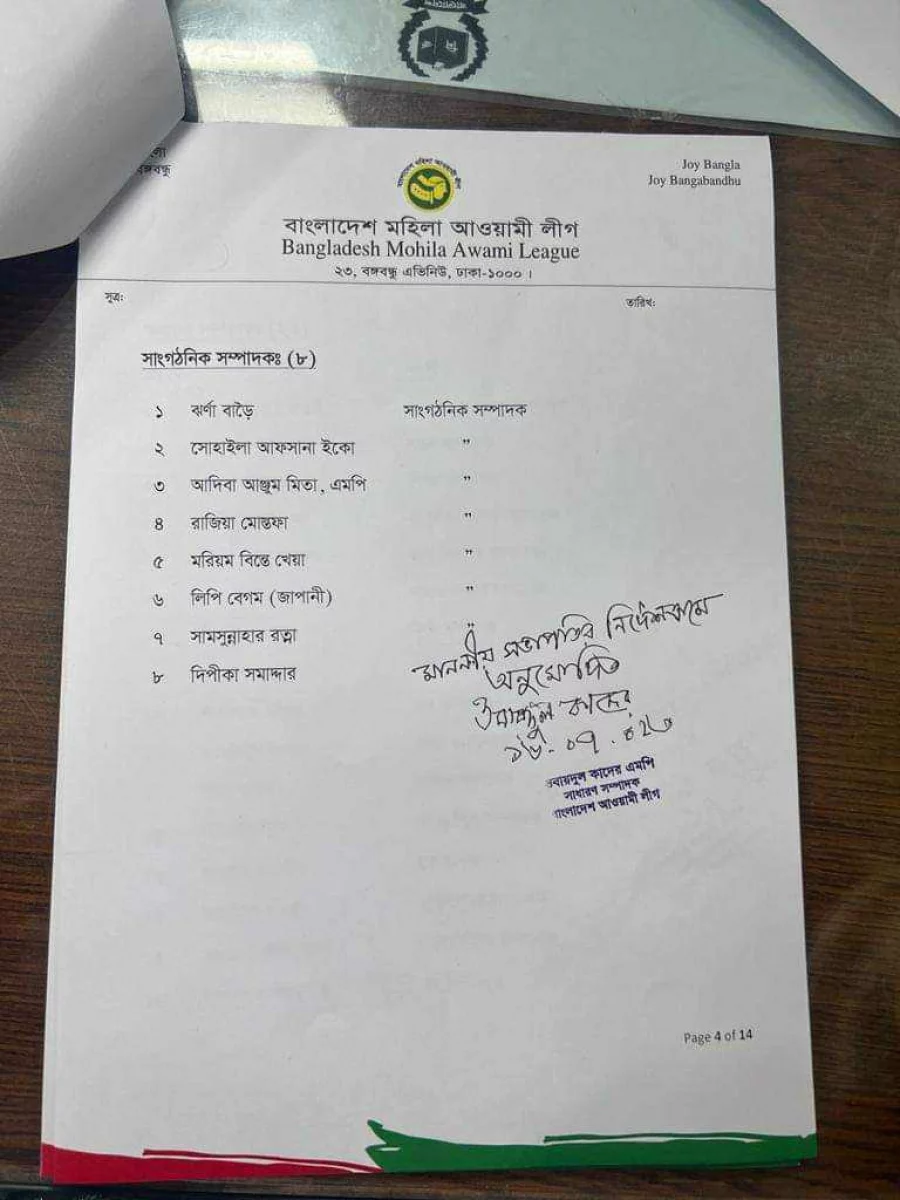 বঙ্গবন্ধু
Joy Bangla
Joy Bangabandhu
বাংলাদেশ মহিলা আওয়ামী লীগ
বাংলাদেশ মহিলা আওয়ামী লীগ
Bangladesh Mohila Awami League
২৩, বঙ্গবন্ধু এভিনিউ, ঢাকা-১০০০ ।
সূত্র: তারিখ:
সাংগঠনিক সম্পাদকঃ (৮)
১ ঝর্ণা বাড়ৈ সাংগঠনিক সম্পাদক
২ সোহাইলা আফসানা ইকো ”
৩ আদিবা আঞ্জুম মিতা, এমপি ”
৪ রাজিয়া মোস্তফা ”
৫ মরিয়ম বিন্তে খেয়া ”
৬ লিপি বেগম (জাপানী) ”
৭ সামসুন্নাহার রত্না ”
৮ দিপীকা সমাদ্দার
মাননীয় সভাপতির নির্দেশক্রমে
অনুমোদিত
ওবায়দুল কাদের
ওবায়দুল কাদের এমপি
সাধারণ সম্পাদক
বাংলাদেশ আওয়ামী লীগ
Page 4 of 14